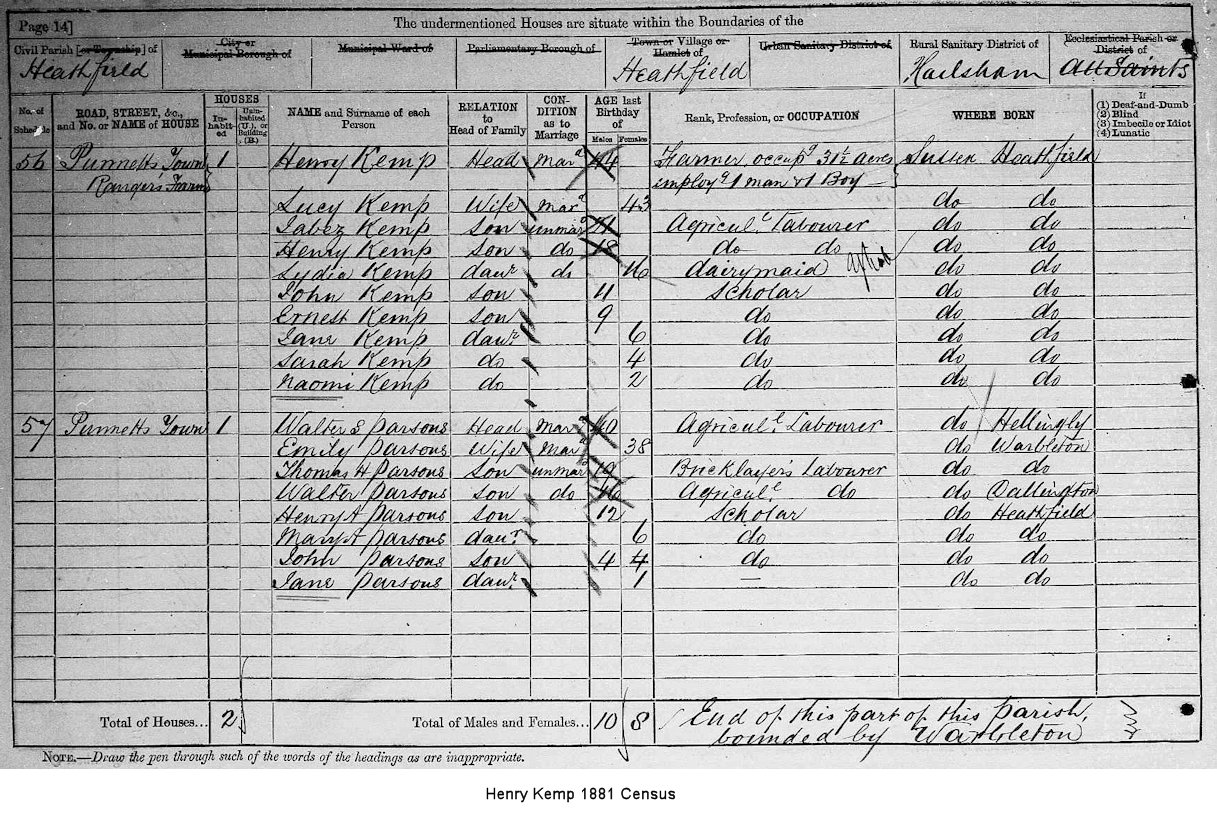 Page 14]
The undermentioned Houses are situate within the Boundaries of the
Civil Parish [or Township] of
Heathfield
City or
Municipal Borough of
Municipal Ward of
Parliamentary Borough of
Town or Village or
Hamlet of
Heathfield
Urban Sanitary District of
Rural Sanitary District of
Hailsham
Ecclesiastical Parish or
District of
All Saints
No. of
Schedule
ROAD, STREET, &c.,
and No. or NAME of HOUSE
HOUSES
In-
habit-
ed
Unin-
habited
(U.), or
Building
(B.)
NAME and Surname of each
Person
RELATION
to
Head of Family
CON-
DITION
as to
Marriage
AGE last
Birthday
of
Males Females
Rank, Profession, or OCCUPATION
WHERE BORN
If
(1) Deaf-and-Dumb
(2) Blind
(3) Imbecile or Idiot
(4) Lunatic
56 Punnetts Town 1 Henry Kemp Head Mard 44 Farmer, occupg 31½ acres Sussex Heathfield
Rangers Farm employg 1 man & 1 Boy
Lucy Kemp Wife Mard 43 do do
Jabez Kemp Son unmard 21 Agricull Labourer do do
Henry Kemp Son do 18 do do do do
Lydia Kemp daur do 16 dairymaid do do
John Kemp Son 11 Scholar do do
Ernest Kemp Son 9 do do do
Jane Kemp daur 6 do do do
Sarah Kemp do 4 do do do
Naomi Kemp do 2 do do do
57 Punnetts Town 1 Walter S Parsons Head Mard 40 Agricull Labourer do Hellingly
Emily Parsons Wife Mard 38 do Warbleton
Thomas H Parsons Son unmard 19 Bricklayer's Labourer do do
Walter Parsons Son do 16 Agricull do do Dallington
Henry A Parsons Son 12 Scholar do Heathfield
Mary A Parsons daur 6 do do do
John Parsons Son 4 4 do do do
Jane Parsons daur 1 — do do
Total of Houses... 2 Total of Males and Females... 10 8 End of this part of this parish,
bounded by Warbleton
NOTE.—Draw the pen through such of the words of the headings as are inappropriate.
Henry Kemp 1881 Census